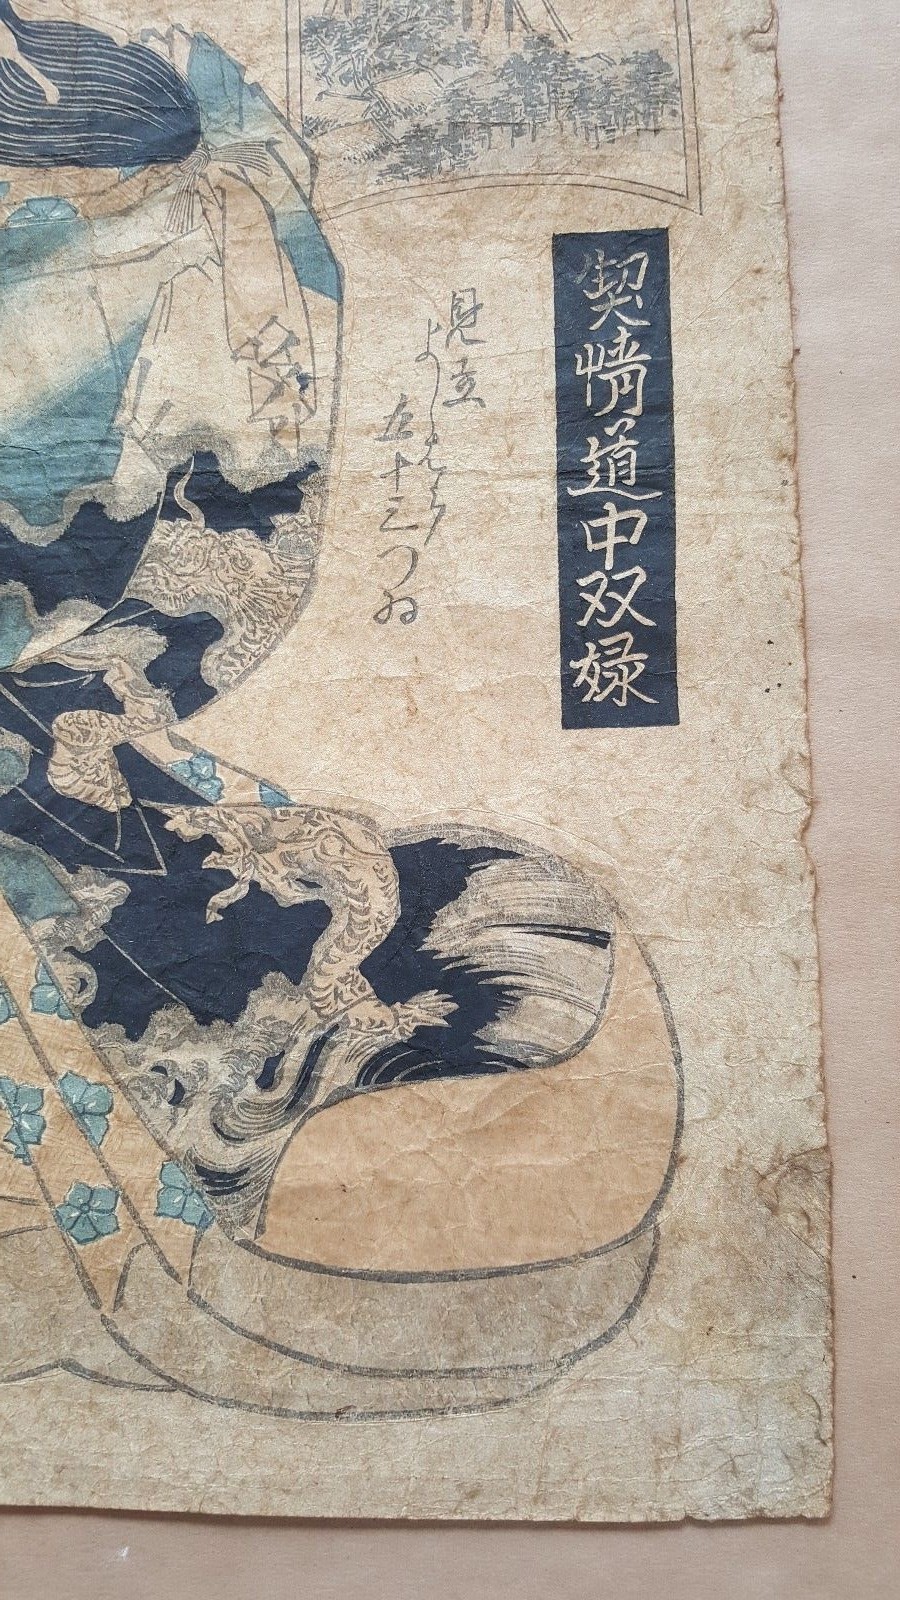 契情道中双娽
見立
よしはら
五十三つゐ